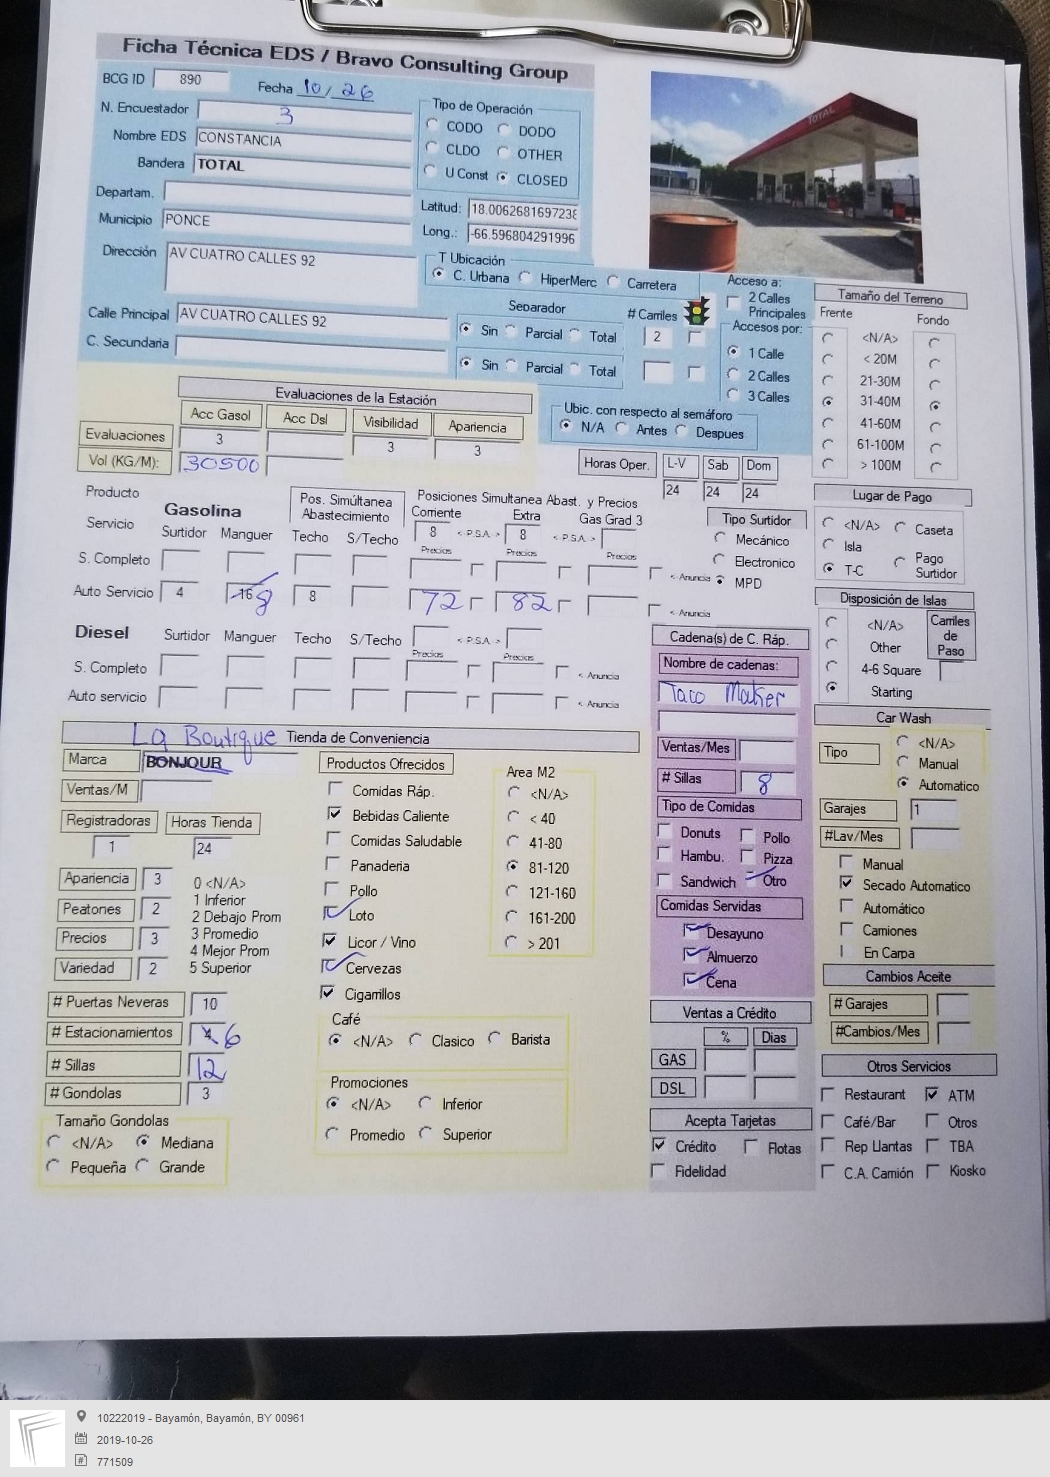 Ficha Técnica EDS / Bravo Consulting Group
BCG ID 890 Fecha 10/26
N. Encuestador 3
Nombre EDS CONSTANCIA
Bandera TOTAL
Departam.
Municipio PONCE
Dirección AV CUATRO CALLES 92
Tipo de Operación
CODO DODO
CLDO OTHER
U Const CLOSED
Latitud: 18.0062681697238
Long.: -66.596804291996
TOTAL
T Ubicación
C. Urbana HiperMerc Carretera
Calle Principal AV CUATRO CALLES 92
C. Secundaria
Separador # Carriles
Sin Parcial Total 2
Sin Parcial Total
Acceso a:
2 Calles Principales
Accesos por:
1 Calle
2 Calles
3 Calles
Tamaño del Terreno
Frente Fondo
<N/A>
< 20M
21-30M
31-40M
41-60M
61-100M
> 100M
Evaluaciones de la Estación
Acc Gasol Acc Dsl Visibilidad Apariencia
Evaluaciones 3 3 3
Vol (KG/M): 30500
Ubic. con respecto al semáforo
N/A Antes Despues
Horas Oper. L-V Sab Dom
24 24 24
Producto Gasolina
Servicio Surtidor Manguer
Pos. Simúltanea Abastecimiento
Techo S/Techo
Posiciones Simultanea Abast. y Precios
Corriente Extra Gas Grad 3
8 < P.S.A. > 8 < P.S.A. >
Precios Precios Precios
S. Completo < Anuncia
Auto Servicio 4 16 8 8 72 82 < Anuncia
Tipo Surtidor
Mecánico
Electronico
MPD
Lugar de Pago
<N/A> Caseta
Isla
T-C Pago Surtidor
Diesel Surtidor Manguer Techo S/Techo < P.S.A. >
Precios Precios
S. Completo < Anuncia
Auto servicio < Anuncia
Disposición de Islas
<N/A>
Other
4-6 Square
Starting
Carriles de Paso
Cadena(s) de C. Ráp.
Nombre de cadenas:
Taco Maker
Ventas/Mes
# Sillas 8
Tipo de Comidas
Donuts Pollo
Hambu. Pizza
Sandwich Otro
Comidas Servidas
Desayuno
Almuerzo
Cena
Car Wash
Tipo
<N/A>
Manual
Automatico
Garajes 1
#Lav/Mes
Manual
Secado Automatico
Automático
Camiones
En Carpa
Cambios Aceite
# Garajes
#Cambios/Mes
La Boutique Tienda de Conveniencia
Marca BONJOUR
Ventas/M
Registradoras Horas Tienda
1 24
Apariencia 3
Peatones 2
Precios 3
Variedad 2
0 <N/A>
1 Inferior
2 Debajo Prom
3 Promedio
4 Mejor Prom
5 Superior
# Puertas Neveras 10
# Estacionamientos 4 6
# Sillas 12
# Gondolas 3
Tamaño Gondolas
<N/A> Mediana
Pequeña Grande
Productos Ofrecidos
Comidas Ráp.
Bebidas Caliente
Comidas Saludable
Panaderia
Pollo
Loto
Licor / Vino
Cervezas
Cigarrillos
Area M2
<N/A>
< 40
41-80
81-120
121-160
161-200
> 201
Café
<N/A> Clasico Barista
Promociones
<N/A> Inferior
Promedio Superior
Ventas a Crédito
% Dias
GAS
DSL
Acepta Tarjetas
Crédito Flotas
Fidelidad
Otros Servicios
Restaurant ATM
Café/Bar Otros
Rep Llantas TBA
C.A. Camión Kiosko
10222019 - Bayamón, Bayamón, BY 00961
2019-10-26
771509